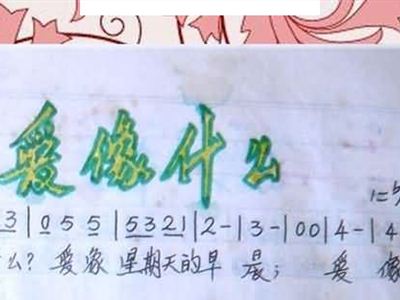 爱像什么
1=
3|0 5 5|5321|2-|3-|00|4-|4
么? 爱象 星期天的早 晨; 爱 像